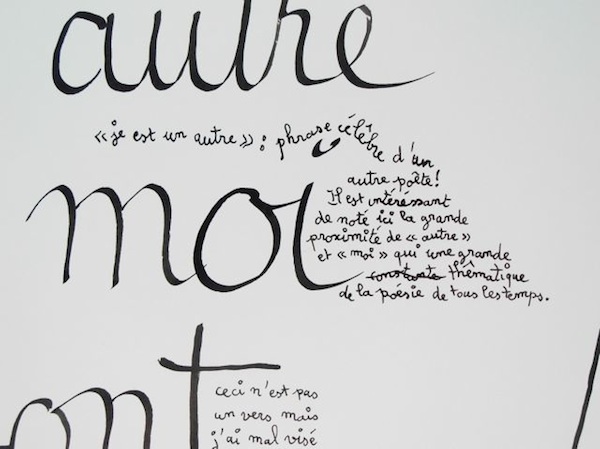 autre
« je est un autre » : phrase célèbre d'un
autre poête !
Il est intéréssant
de noté ici la grande
proximité de « autre »
moi
et « moi » qui une grande
constante thêmatique
de la poésie de tous les temps.
ont
ceci n'est pas
un vers mais
j'ai mal visé